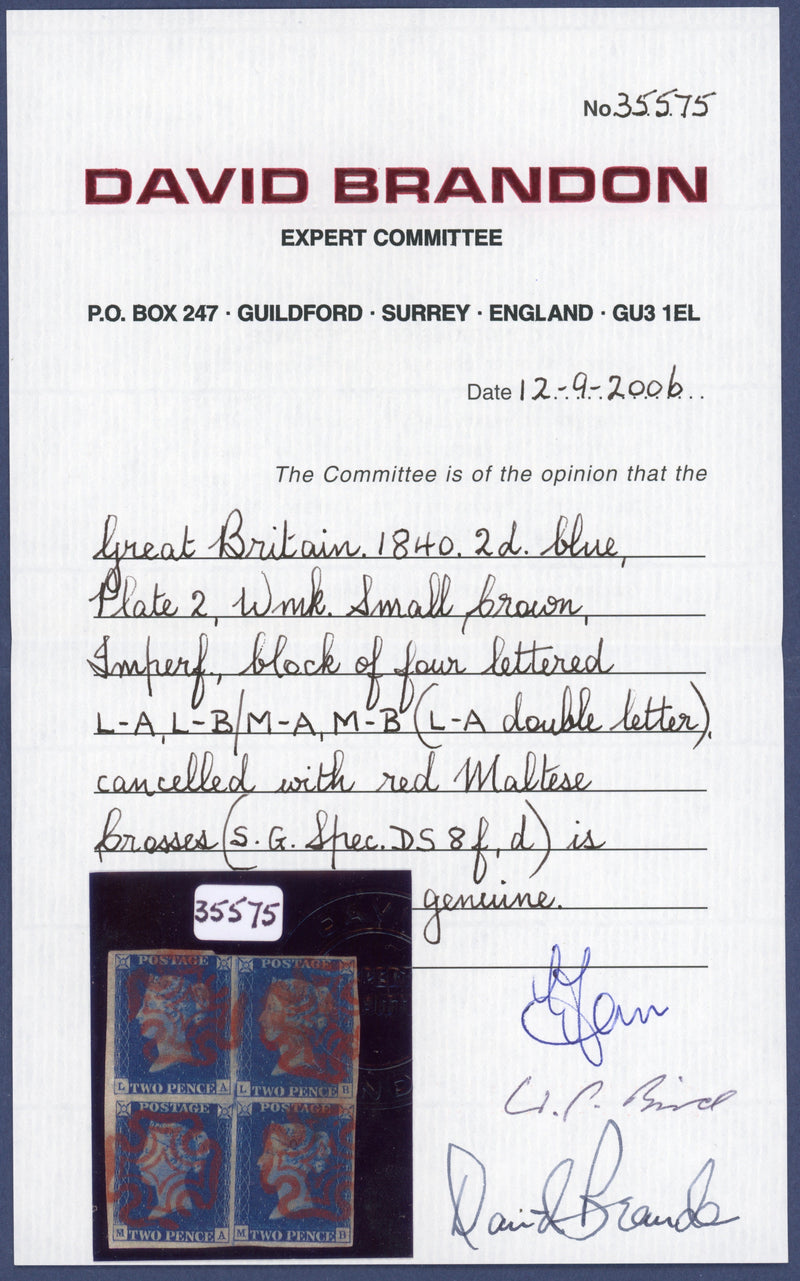 No 35575
DAVID BRANDON
EXPERT COMMITTEE
P.O. BOX 247 · GUILDFORD · SURREY · ENGLAND · GU3 1EL
Date 12-9-2006
The Committee is of the opinion that the
Great Britain. 1840. 2d. blue,
Plate 2, Wmk. Small Crown,
Imperf., block of four lettered
L-A, L-B/M-A, M-B (L-A double letter),
cancelled with red Maltese
Crosses (S.G. Spec. DS 8f, d) is
genuine.
35575
POSTAGE POSTAGE
L TWO PENCE A L TWO PENCE B
POSTAGE POSTAGE
M TWO PENCE A M TWO PENCE B
David Brandon